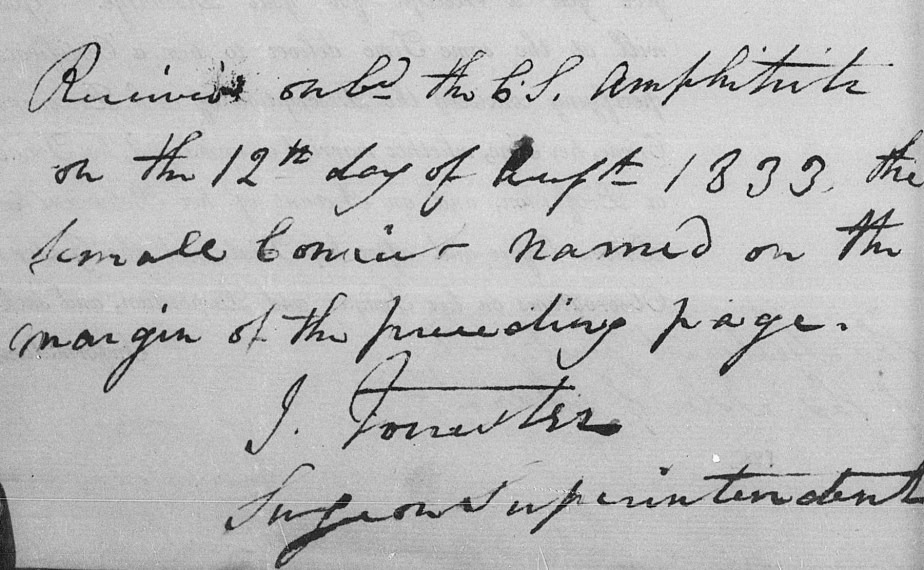 Received on bd the C.S. Amphitrite
on the 12th day of Augst 1833, the
female Convict named on the
margin of the preceding page.
J. Forrester
Surgeon Superintendent